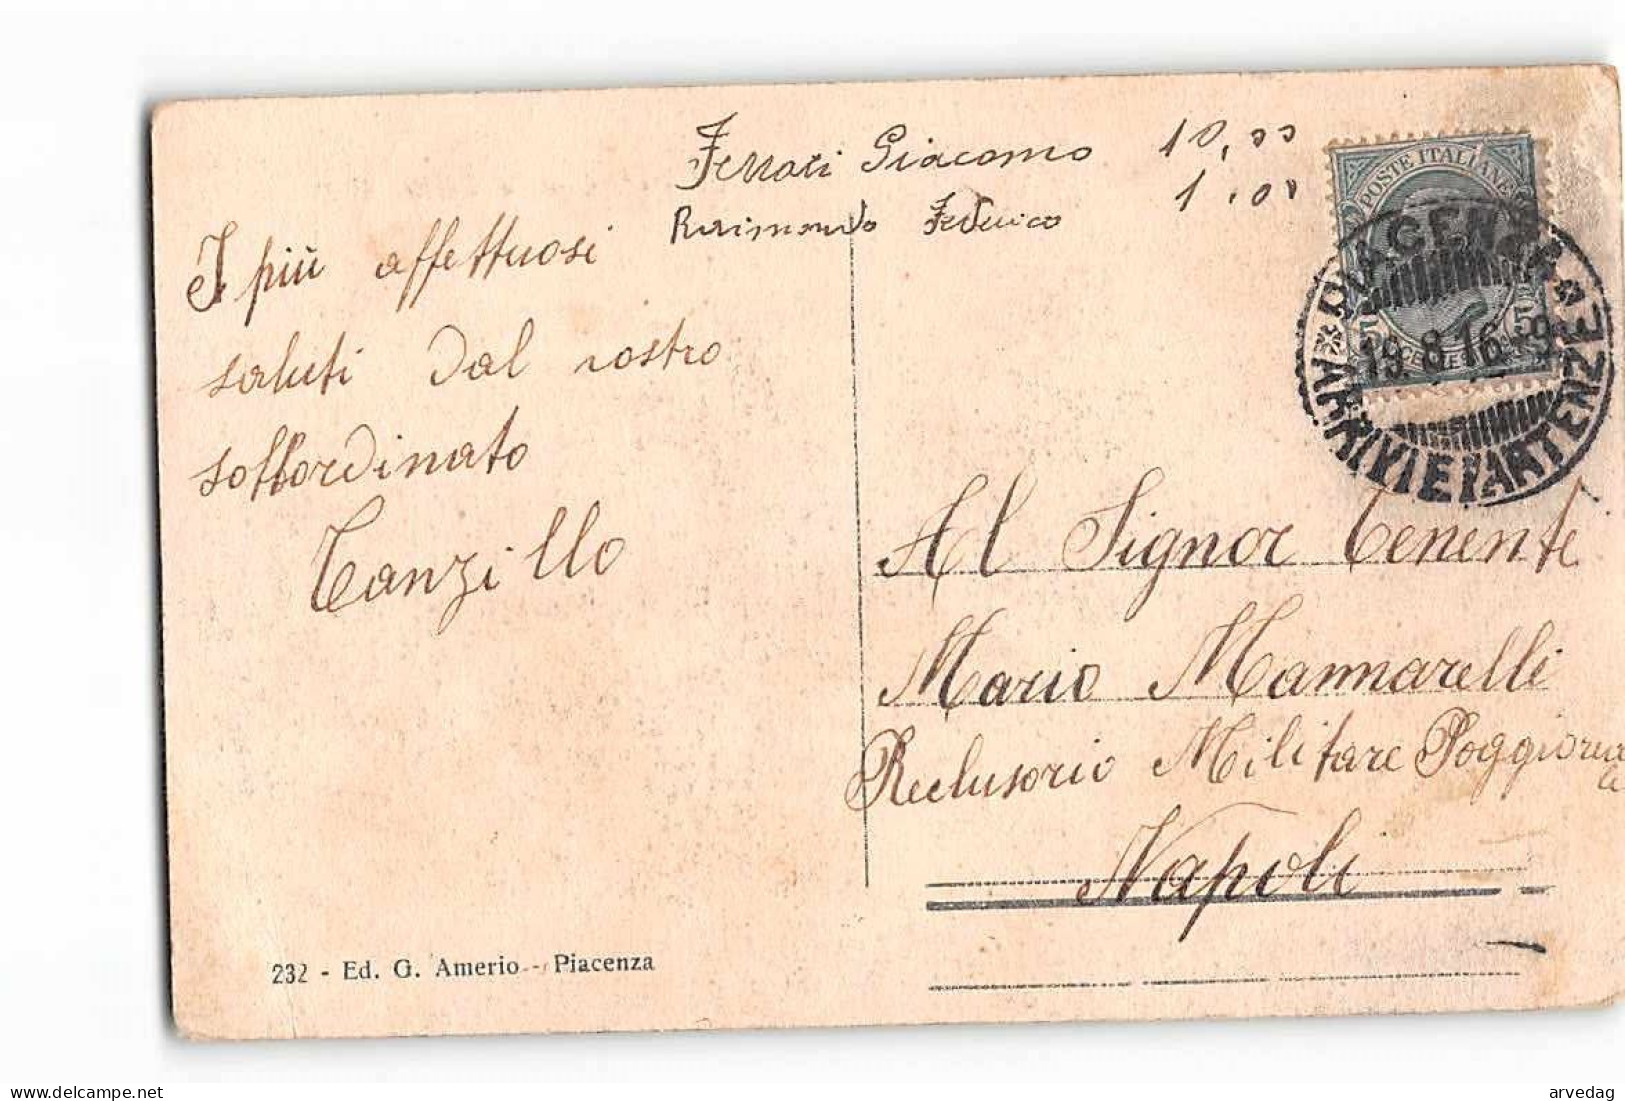 Ferrari Giacomo 10,00
Raimondo Federico 1.00
I più affettuosi
saluti dal vostro
sottordinato
Tanzillo
POSTE ITALIANE
PIACENZA
19.8.16-9
ARRIVI E PARTENZE
Al Signor Tenente
Mario Mannarelli
Reclusorio Militare Poggiorea
Napoli
232 - Ed. G. Amerio - Piacenza
delcampe.net
arvedag